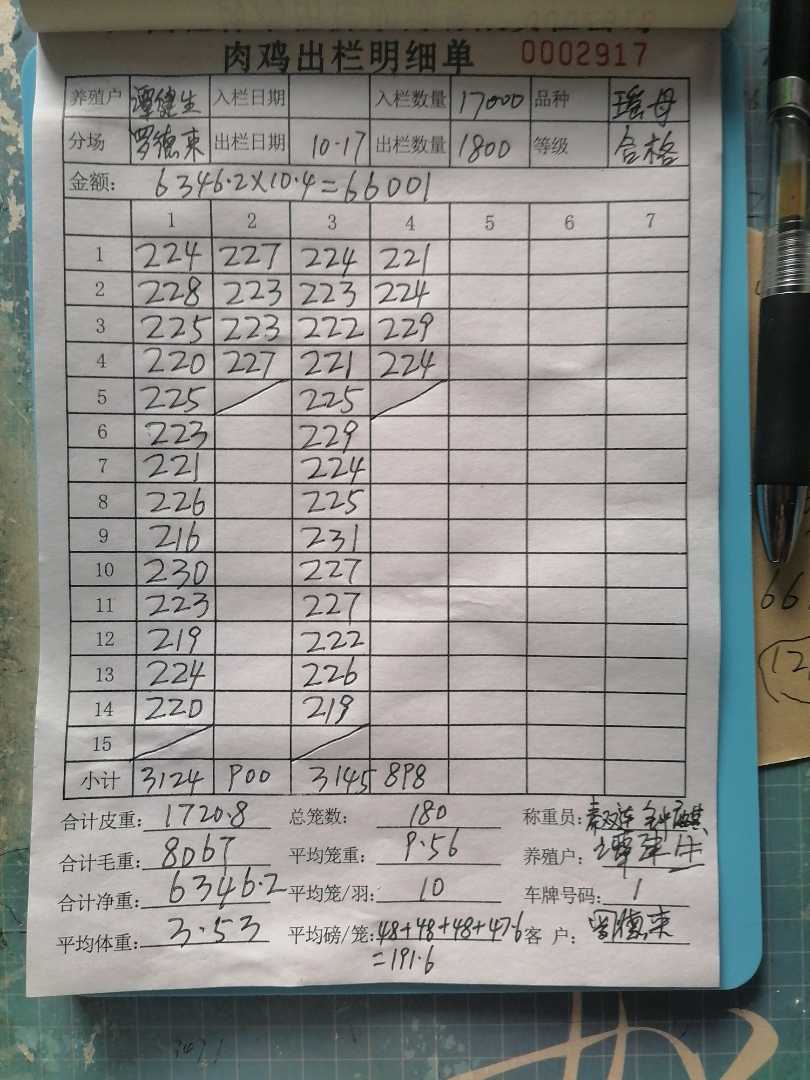 肉鸡出栏明细单 0002917
养殖户 谭健生 入栏日期 入栏数量 17000 品种 瑶母
分场 罗德来 出栏日期 10.17 出栏数量 1800 等级 合格
金额: 6346.2×10.4=66001
1 2 3 4 5 6 7
1 224 227 224 221
2 228 223 223 224
3 225 223 222 229
4 220 227 221 224
5 225 225
6 223 229
7 221 224
8 226 225
9 216 231
10 230 227
11 223 227
12 219 222
13 224 226
14 220 219
15
小计 3124 900 3145 898
合计皮重: 1720.8 总笼数: 180 称重员:
合计毛重: 8067 平均笼重: 9.56 养殖户: 谭建生
合计净重: 6346.2 平均笼/羽: 10 车牌号码: 1
平均体重: 3.53 平均磅/笼: 48+48+48+47.6 客 户: 罗德来
=191.6
66
12